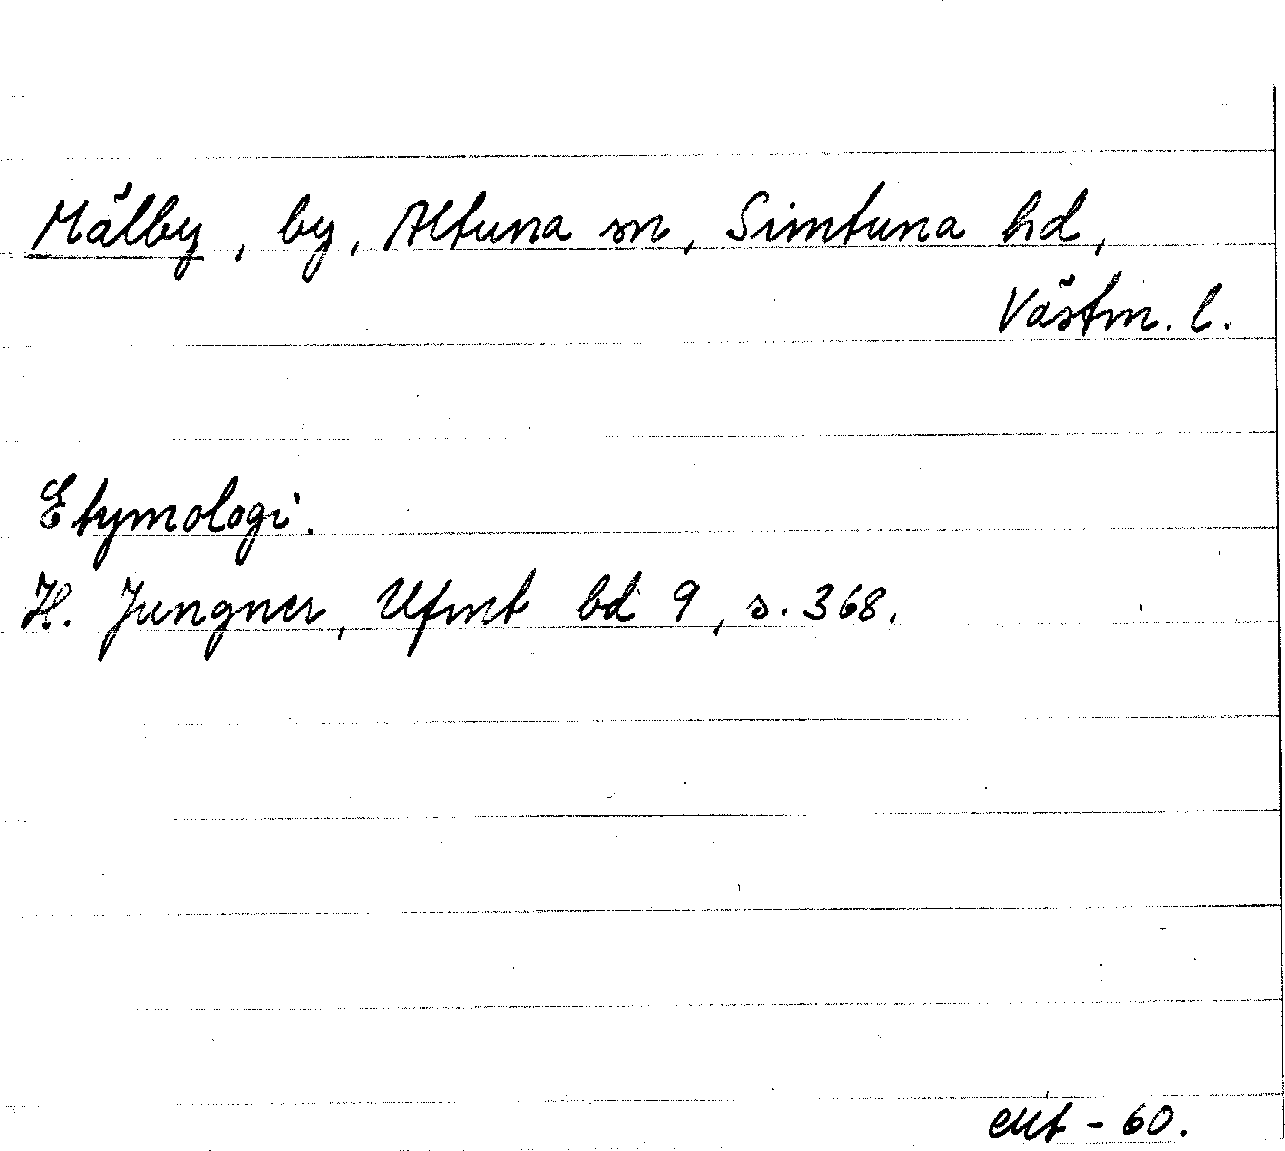 Mälby, by, Altuna sn, Simtuna hd,
Västm. l.
Etymologi.
H. Jungner, Ufmt bd 9, s. 368.
- 60.